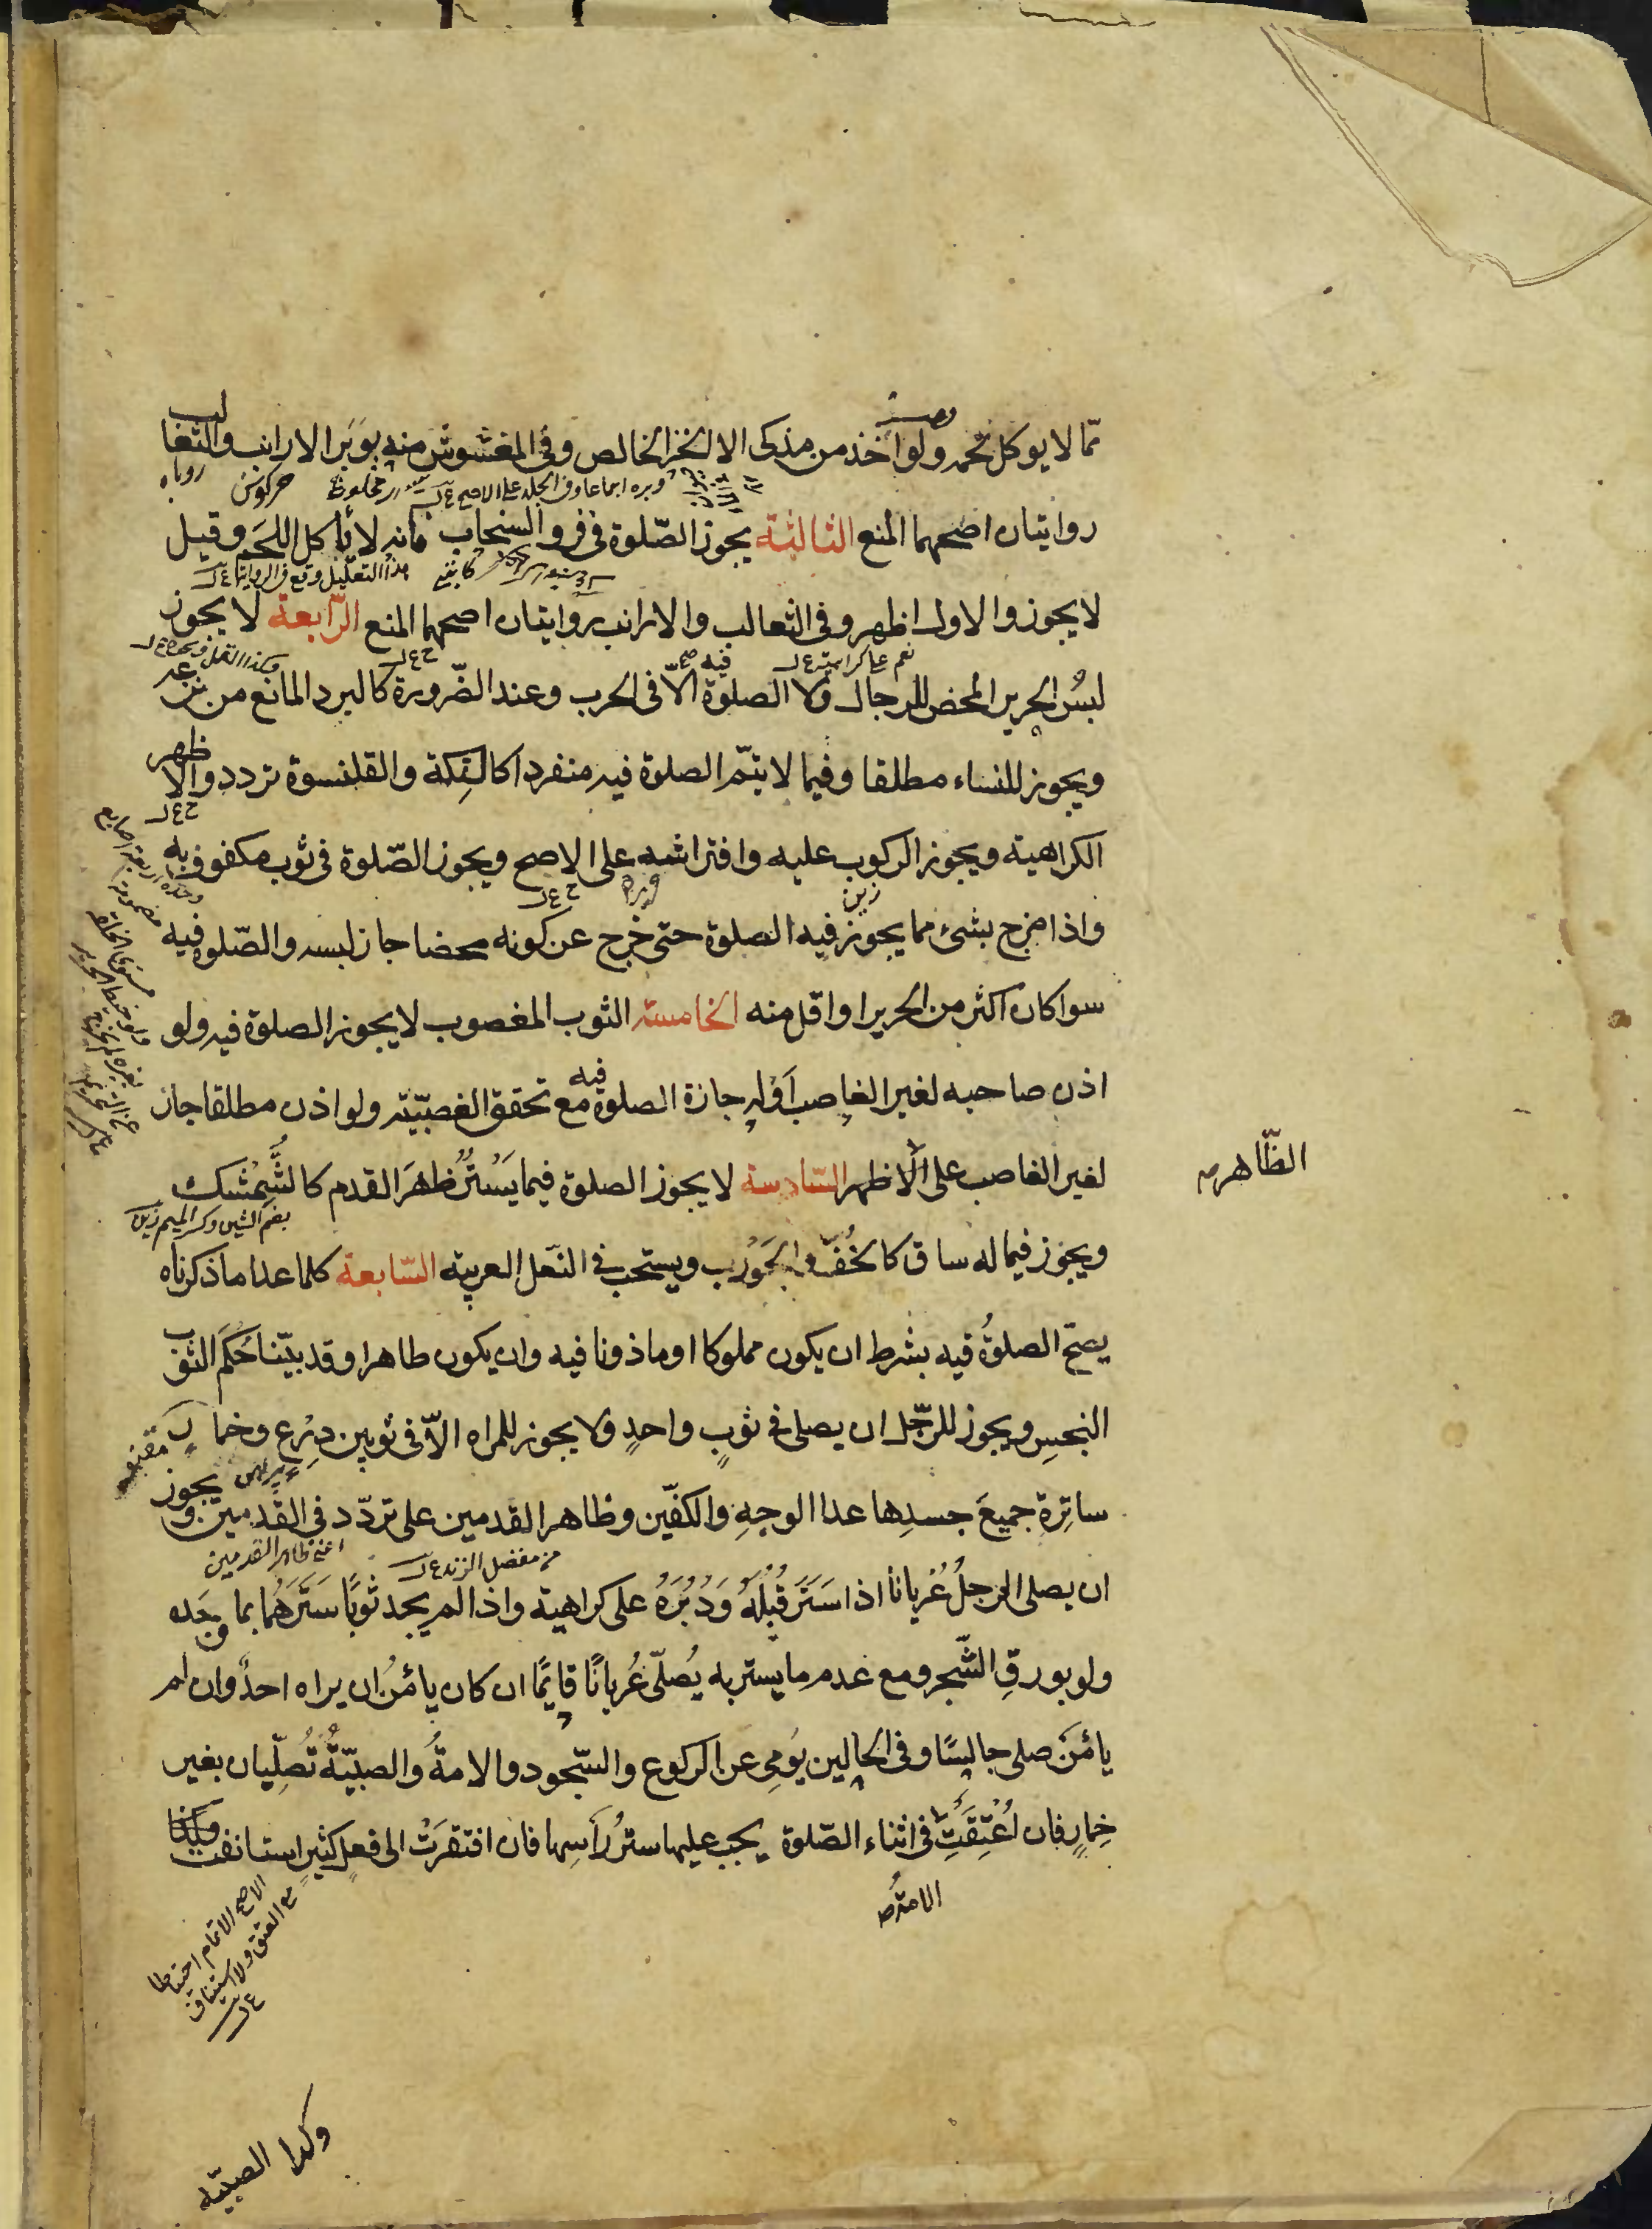 مما لا يوكل لحمه ولو اخذ من مذكى الا الخز الخالص وفى المغشوش منه بوبر الارانب والثعالب
وبره اجماعا وفى الجلد على الاصح ع ل مخلوط خركوش روباه
روايتان اصحهما المنع الثالثة يجوز الصّلوة فى فرو السنجاب فانه لا ياكل اللحم وقيل
هذا التعليل وقع فى الرواية ع ل
لا يجوز والاول اظهر وفى الثعالب والارانب روايتان اصحهما المنع الرّابعة لا يجوز
نعم على كراهية ع ل فيه صح ح ع ل
لبسُ الحرير المحض للرجال ولا الصلوة الاّ فى الحرب وعند الضّرورة كالبرد المانع من نزعه
ويجوز للنساء مطلقا وفيما لا يتمّ الصلوة فيه منفردا كالتِكة والقلنسوة تردد والاظهر
ح ع ل
الكراهية ويجوز الركوب عليه وافتراشه على الاصح ويجوز الصّلوة فى ثوب مكفوف به
ح ع ل
واذا مزج بشئ مما يجوز فيه الصلوة حتى خرج عن كونه محضا جاز لبسه والصّلوة فيه
سوا كان اكثر من الحرير او اقل منه الخامسة الثوب المغصوب لا يجوز الصلوة فيه ولو
اذن صاحبه لغير الغاصب اَوْ له جازة الصلوة فيه مع تحقق الغصبيّة ولو اذن مطلقا جاز
لغير الغاصب على الاظهر السّادسة لا يجوز الصلوة فيما يَسْتُرُ ظهرَ القدم كالشُّمِشْك
الظّاهر
بضم الشين وكسر الميم
ويجوز فيما له ساق كالخُفّ والجَوْرَب ويستحب فى النّعل العربية السّابعة كلما عدا ما ذكرناه
يصحّ الصلوةُ فيه بشرط ان يكون مملوكا او ماذونا فيه وان يكون طاهرا وقد بيّنا حُكمَ الثوب
النجسِ ويجوز للرّجل ان يصلى فى ثوبٍ واحدٍ ولا يجوز للمراه الاّ فى ثوبين دِرْعٍ وخمارٍ
مقنعه
پيراهن
ساتِرةٍ جميعَ جسدِها عدا الوجهِ والكفّين وظاهر القدمين على تردّد فى القدمين ويجوز
من مفصل الزند ع ل اعنى ظاهر القدمين
ان يصلى الرجلُ عُريانا اذا سَتَرَ قُبُلَهُ وَدُبُرَهُ على كراهية واذا لم يجد ثوبًا سَتَرَهُما بما وجَده
ولو بورقِ الشّجر ومع عدم ما يستر به يُصلّى عُريانًا قايمًا ان كان يامَنُ ان يراه احدٌ وان لم
يامَنْ صلى جالسًا وفى الحالين يُومى عن الركوع والسّجود والامةُ والصبيّةُ تُصلّيان بغير
خِمارٍ فان اُعْتِقَتِ فى اثناء الصّلوة يجب عليها سترُ رأسِها فان افتقرَتْ الى فعل كثيرٍ استانفت
الامة
الاصح الاتمام احتياطا
مع العتق ولا استيناف
ع ل
وكذا الصبيّه